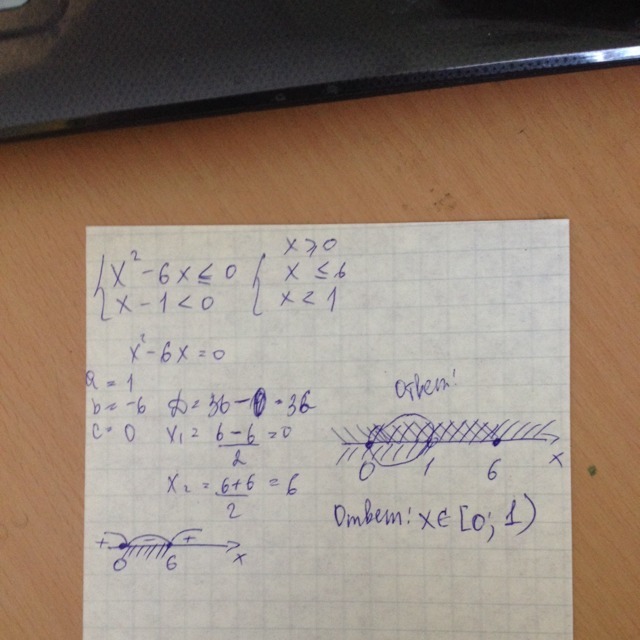 x² - 6x ≤ 0
x - 1 < 0
x ≥ 0
x ≤ 6
x < 1
x² - 6x = 0
a = 1
b = -6
c = 0
D = 36 - 0 = 36
x₁ = (6 - 6)/2 = 0
x₂ = (6 + 6)/2 = 6
+ - +
0 6 x
Ответ:
0 1 6 x
Ответ: x ∈ [0; 1)